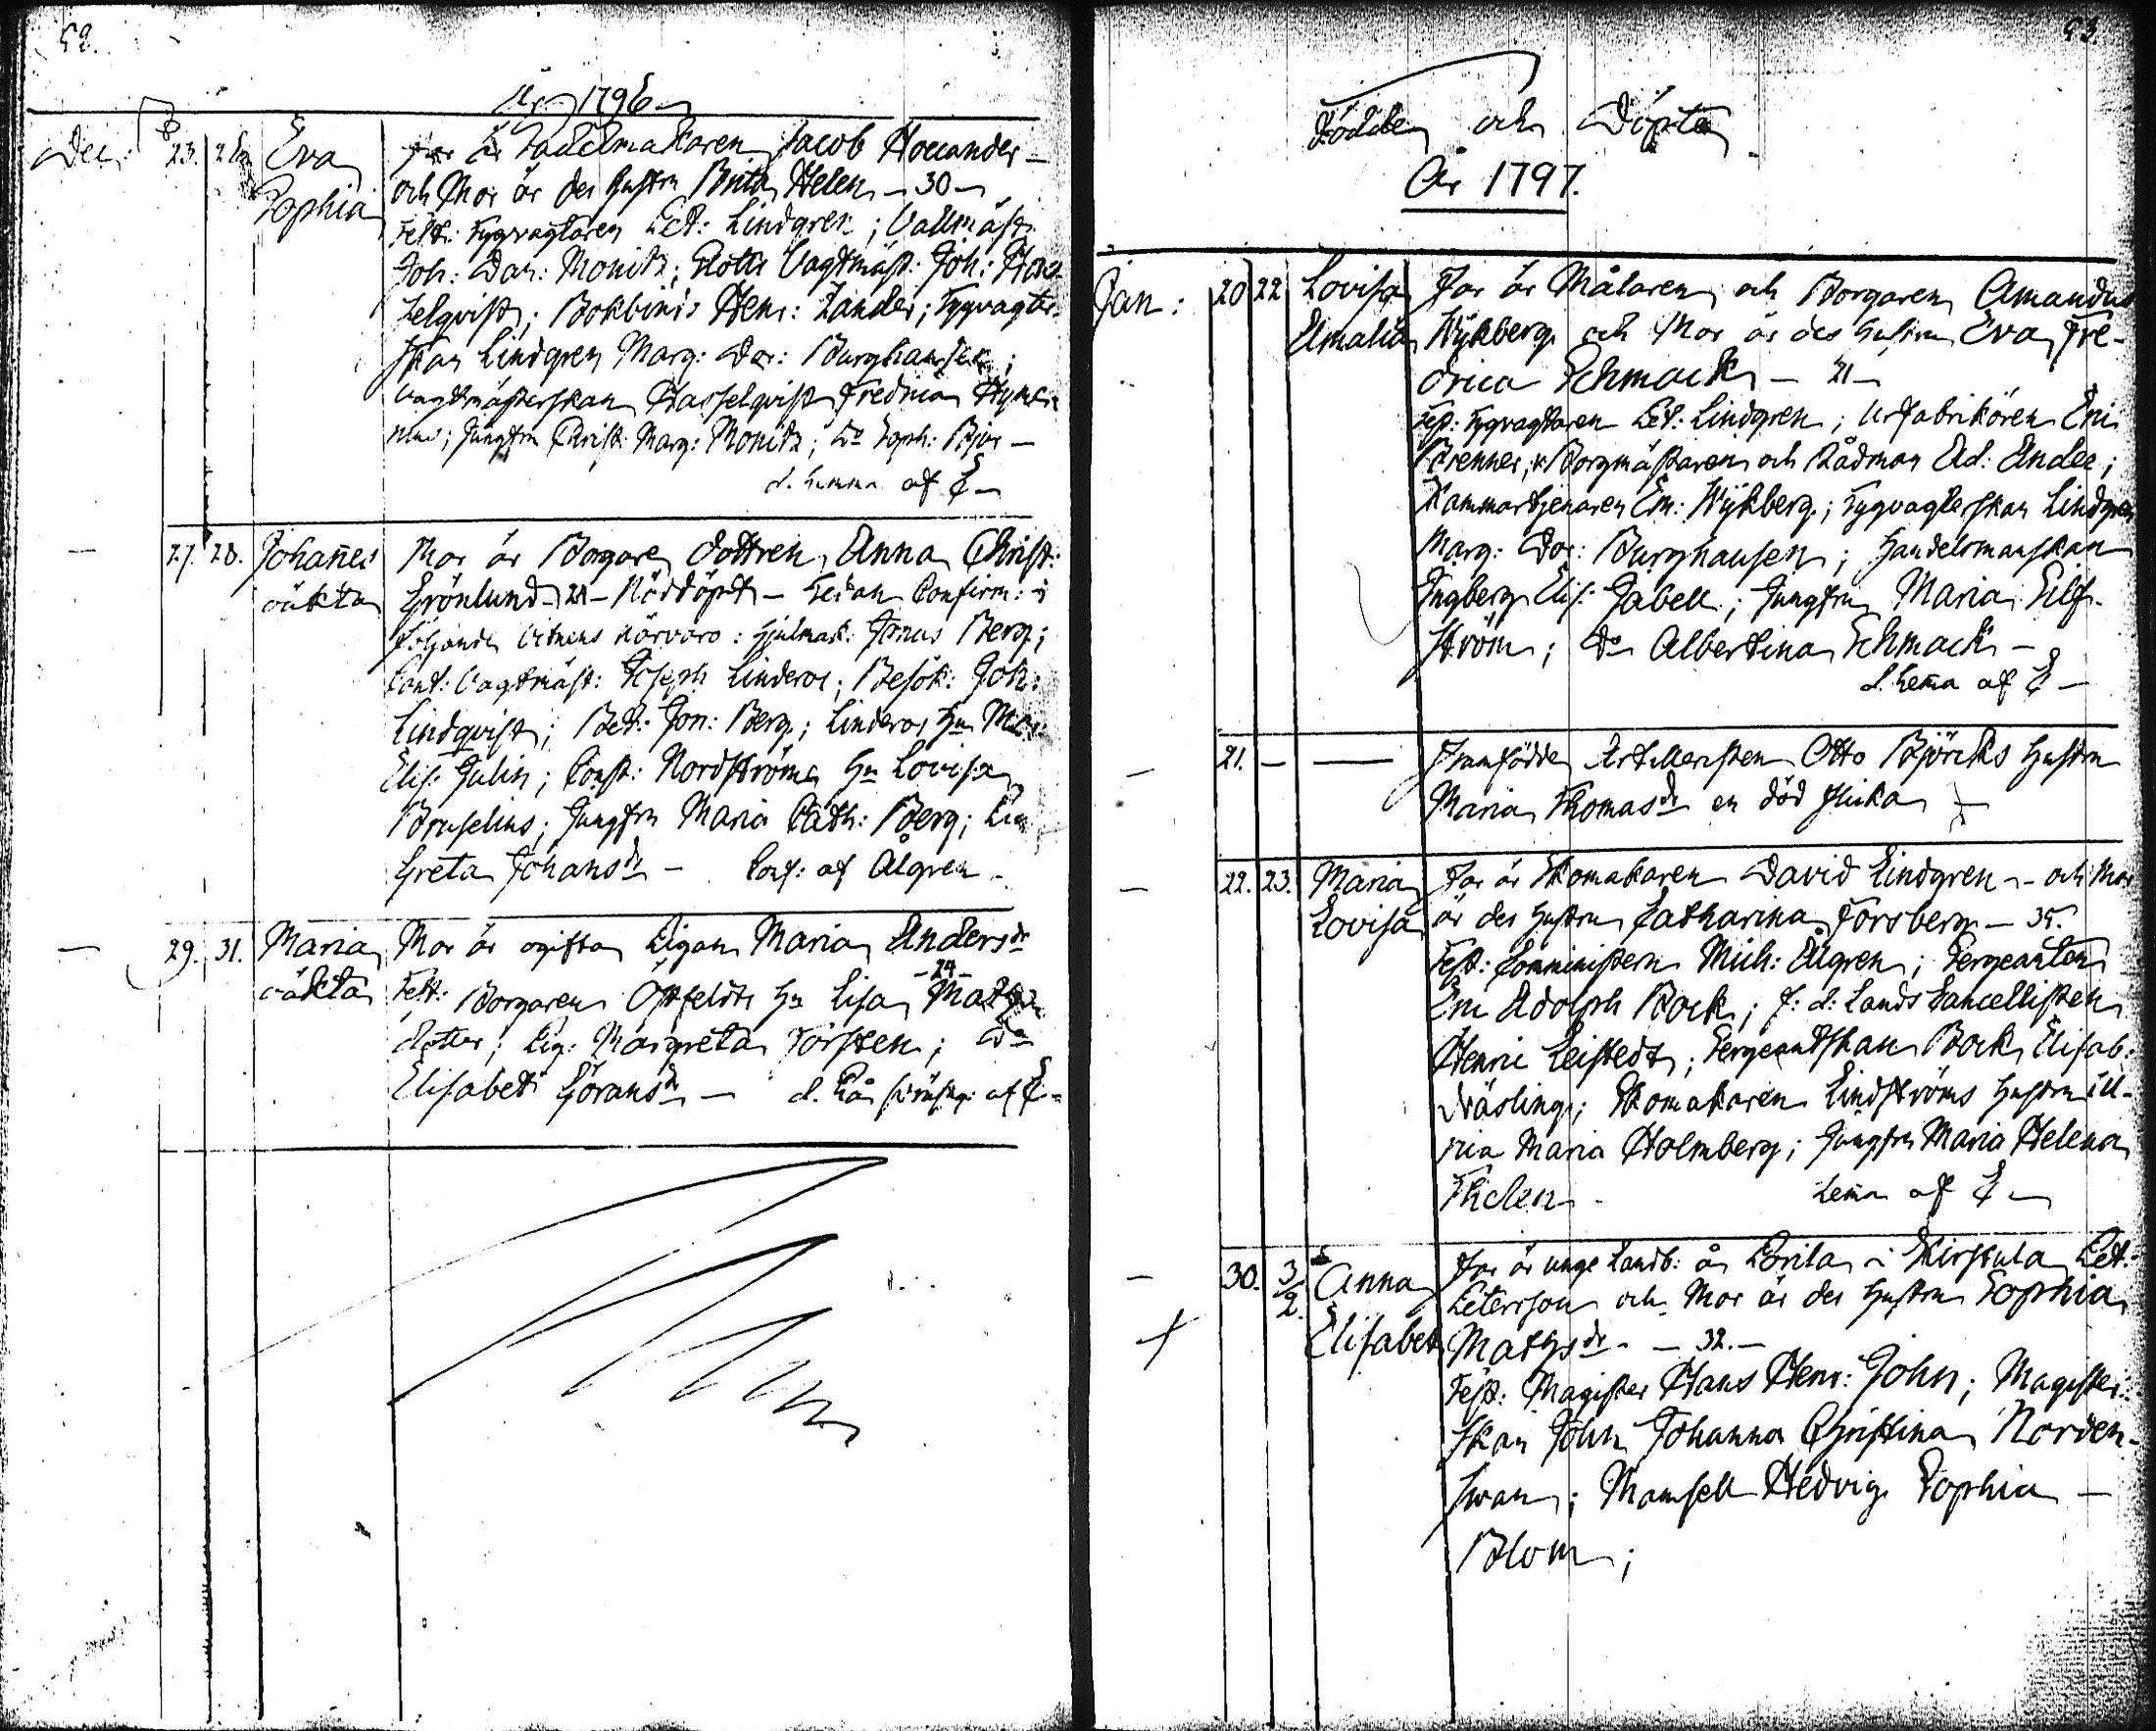 52.
År 1796
Dec: 23. 26 Eva Sophia
Far är Sadelmakaren Jacob Hollander
och Mor är des Hustru Brita Helen - 30 -
Test: Tygvagtaren Pet: Lindgren; Vallmäst:
Joh: Dan: Monitz; Slotts Vagtmäst: Joh: Has-
selqvist; Bokbind: Henr: Zander; Tygvagter-
skan Lindgren Marg: Dor: Burghausen;
Vagtmästerskan Hasselqvist Fredrica
Jungfru Christ: Marg: Monitz; Do Soph: Bjur -
d. hemma af E -
- 27. 28. Johanes oäkta
Mor är Borgare dottren Anna Christ:
Grönlund - 21 - Nöddöpt - Sedan Confirm: i
följande Vitnens närvaro: Hjulmak: Jonas Berg;
Cont: Vagtmäst: Joseph Linderos; Besök: Joh:
Lindqvist; Bet: Jon: Berg; Linderos Hu
Elis: Julin; Const: Nordströms Hu Lovisa
Bruselius; Jungfru Maria Cath: Berg;
Greta Johansdr - Conf: af Ålgren -
- 29. 31. Maria oäkta
Mor är ogifta Pigan Maria Andersdr
- 24 -
Test: Borgaren Öhfeldts Hu Lisa Mats
dotter; Pig: Margreta Torsten; Do
Elisabet Göransdr - d. af E -
53.
Födde och Döpte
År 1797.
Jan: 20 22 Lovisa Amalia
Far är Målaren och Borgaren Amandus
Wykberg och Mor är des Hustru Eva Fre-
drica Schmack - 21 -
Test: Tygvagtaren Pet: Lindgren; Urfabrikören Eric
Brenner, Borgmästaren och Rådman Ad: Ander;
Kammartjenaren Em: Wykberg; Tygvagterskan Lindgren
Marg: Dor: Burghausen; Handelsmanskan
Ingberg Elis: Gabell; Jungfru Maria Silf-
ström; Do Albertina Schmack -
d. hema af E -
- 21. - -
Framfödde Artilleristen Otto Björcks Hustru
Maria Thomasdr en död flicka
- 22. 23. Maria Lovisa
Far är Skomakaren David Lindgren - och Mor
är des Hustru Catharina Forsberg - 35.
Test: Comministern Mich: Ålgren; Sergeanten
Eric Adolph Bock; f: d: Lands Cancellisten
Henric Leistedt; Sergeantskan Bock Elisab:
Näsling; Skomakaren Lindströms Hustru Ul-
rica Maria Holmberg; Jungfru Maria Helena
Thelen - hema af E -
- 30. 3/2. Anna Elisabet
Far är unge Landb: å Porila i Kirstula Pet:
Petersson och Mor är des Hustru Sophia
Matsdr - - 32. -
Test: Magister Hans Henr: John; Magister-
skan John Johanna Christina Norden-
swan; Mamsell Hedvig Sophia -
Blom;